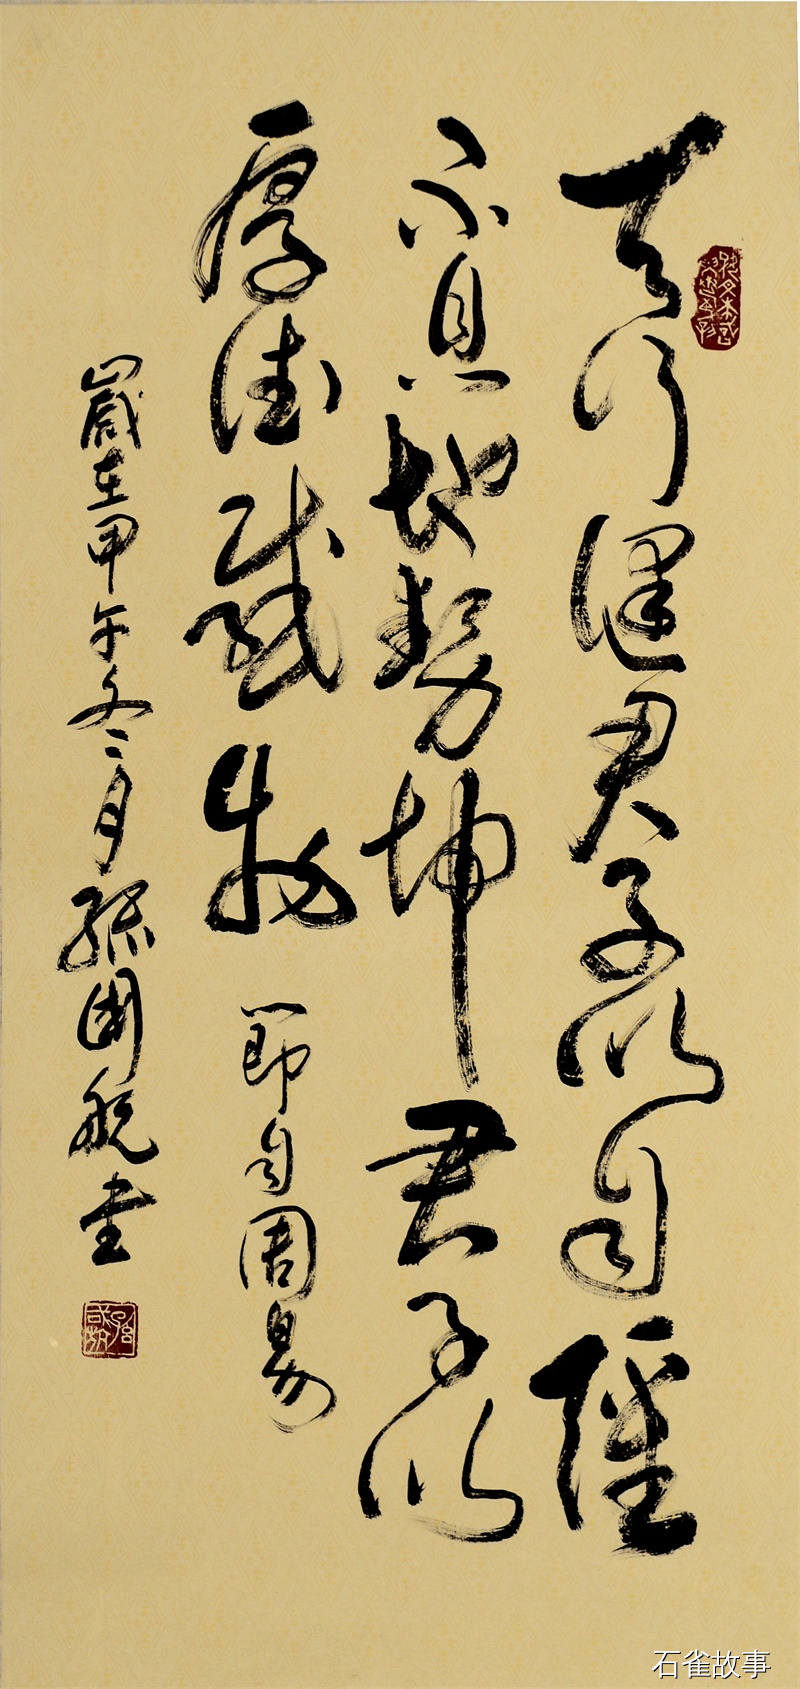 天行健君子以自强
不息地势坤君子以
厚德载物
节自周易
岁在甲午冬月孙国
石雀故事